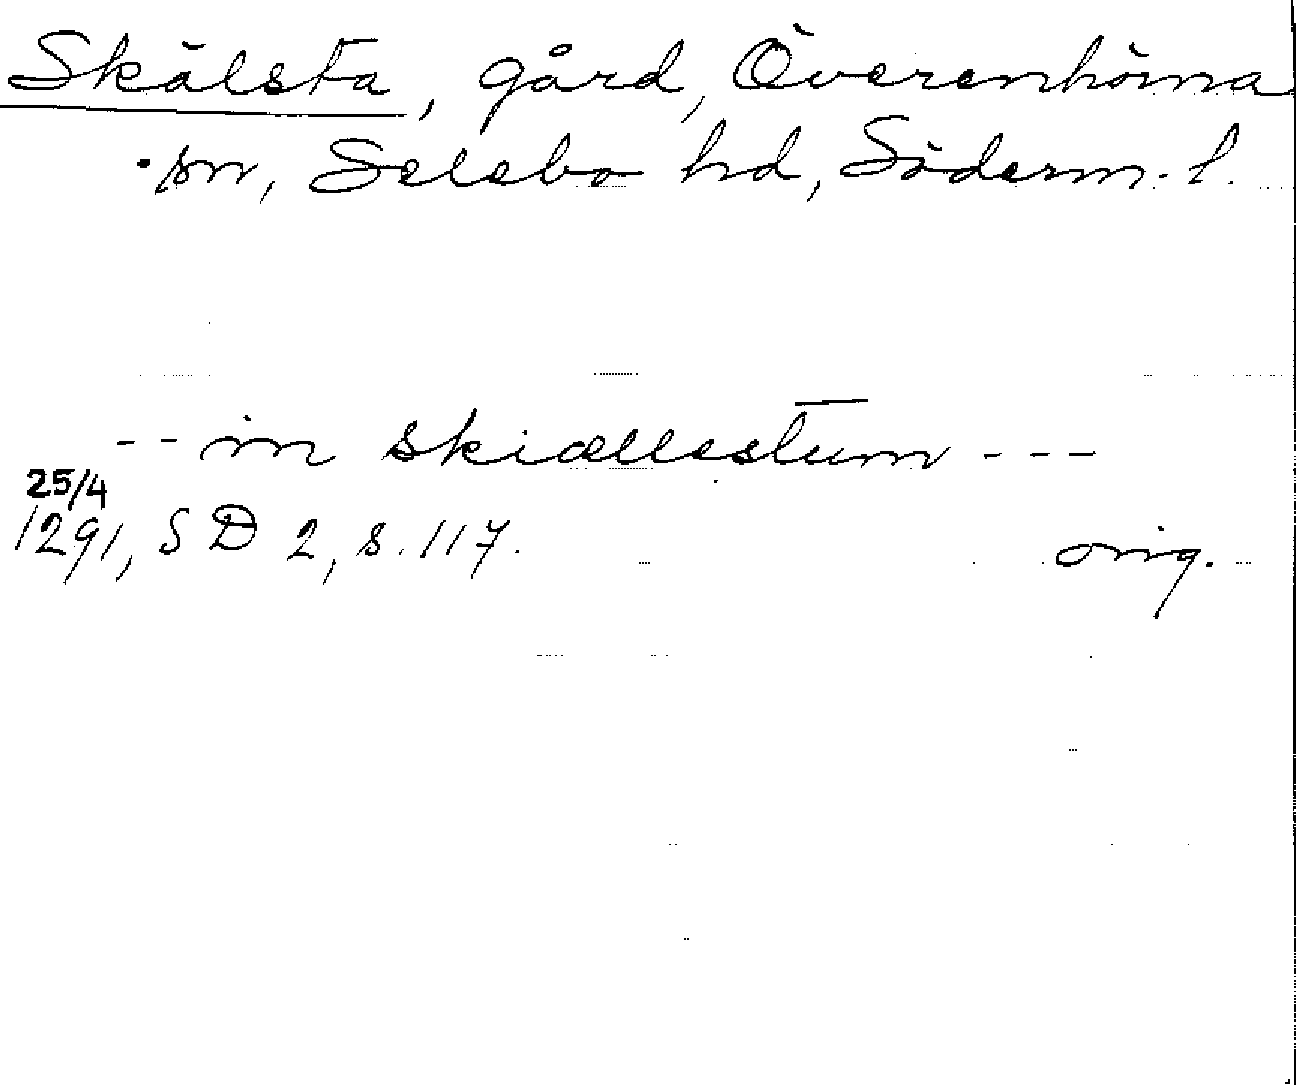 Skälsta, gård, Överenhörna
sn, Selebo hd, Söderm. l.
-- in skiællestum ---
25/4
1291, SD 2, s. 117.
orig.